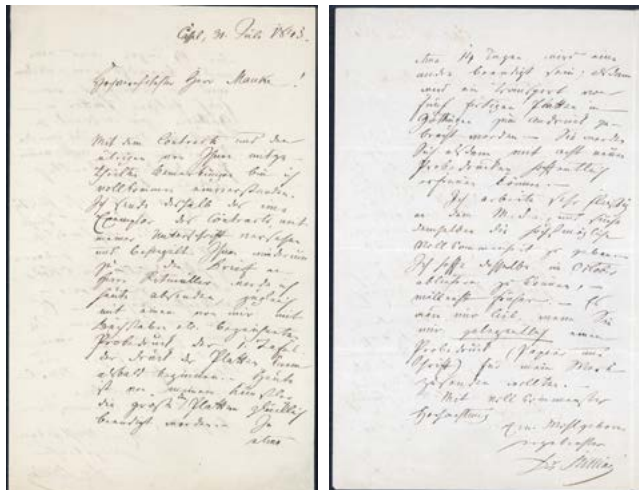 Cassel, 31. Juli 1843.
Hochverehrtester Herr Mauke!
Mit dem Contracte und den
übrigen von Ihnen mitge-
theilten Bemerkungen bin ich
vollkommen einverstanden.
Ich sende deshalb das eine
Exemplar des Contracts, mit
meiner Unterschrift versehen
und besiegelt Ihnen wiederum
zu. Den Brief an
Herrn Ritmüller werde ich
heute absenden, zugleich
mit einem von mir mit
Buchstaben etc. bezeichneten
Probedruck der 1. Tafel.
der Druck der Platten kann
alsbald beginnen. Heute
ist von meinem Künstler
die große Platten
beendigt worden. In
etwa
14 Tagen wird eine
andre beendigt sein; alsdann
wird ein Transport von
fünf fertigen Platten in
Göttingen zum Andruck ge-
bracht werden. Sie werden
Sich alsdann mit acht neuen
Probedrucken hoffentlich
erfreuen können.
Ich arbeite sehr fleißig
an dem und suche
demselben die höchstmögliche
Vollkommenheit zu geben.
Ich hoffe dasselbe im October
abliefern zu können,
vielleicht früher. Es
wäre mir lieb, wenn Sie
mir gelegentlich einen
Probedruck (Papier und
Schrift) für mein Werk
zusenden wollten.
Mit vollkommenster
Hochachtung
Ew. Wohlgeboren
ergebenster